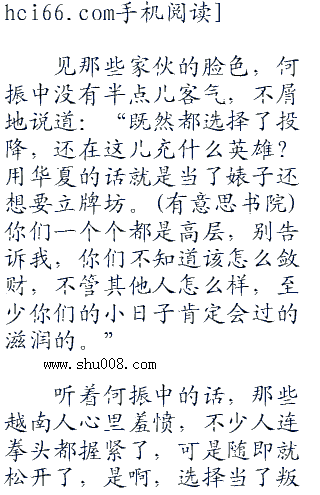 hci66.com手机阅读]
见那些家伙的脸色，何
振中没有半点儿客气，不屑
地说道：“既然都选择了投
降，还在这儿充什么英雄？
用华夏的话就是当了婊子还
想要立牌坊。(有意思书院)
你们一个个都是高层，别告
诉我，你们不知道该怎么敛
财，不管其他人怎么样，至
少你们的小日子肯定会过的
滋润的。”
www.shu008.com
听着何振中的话，那些
越南人心里羞愤，不少人连
拳头都握紧了，可是随即就
松开了，是啊，选择当了叛